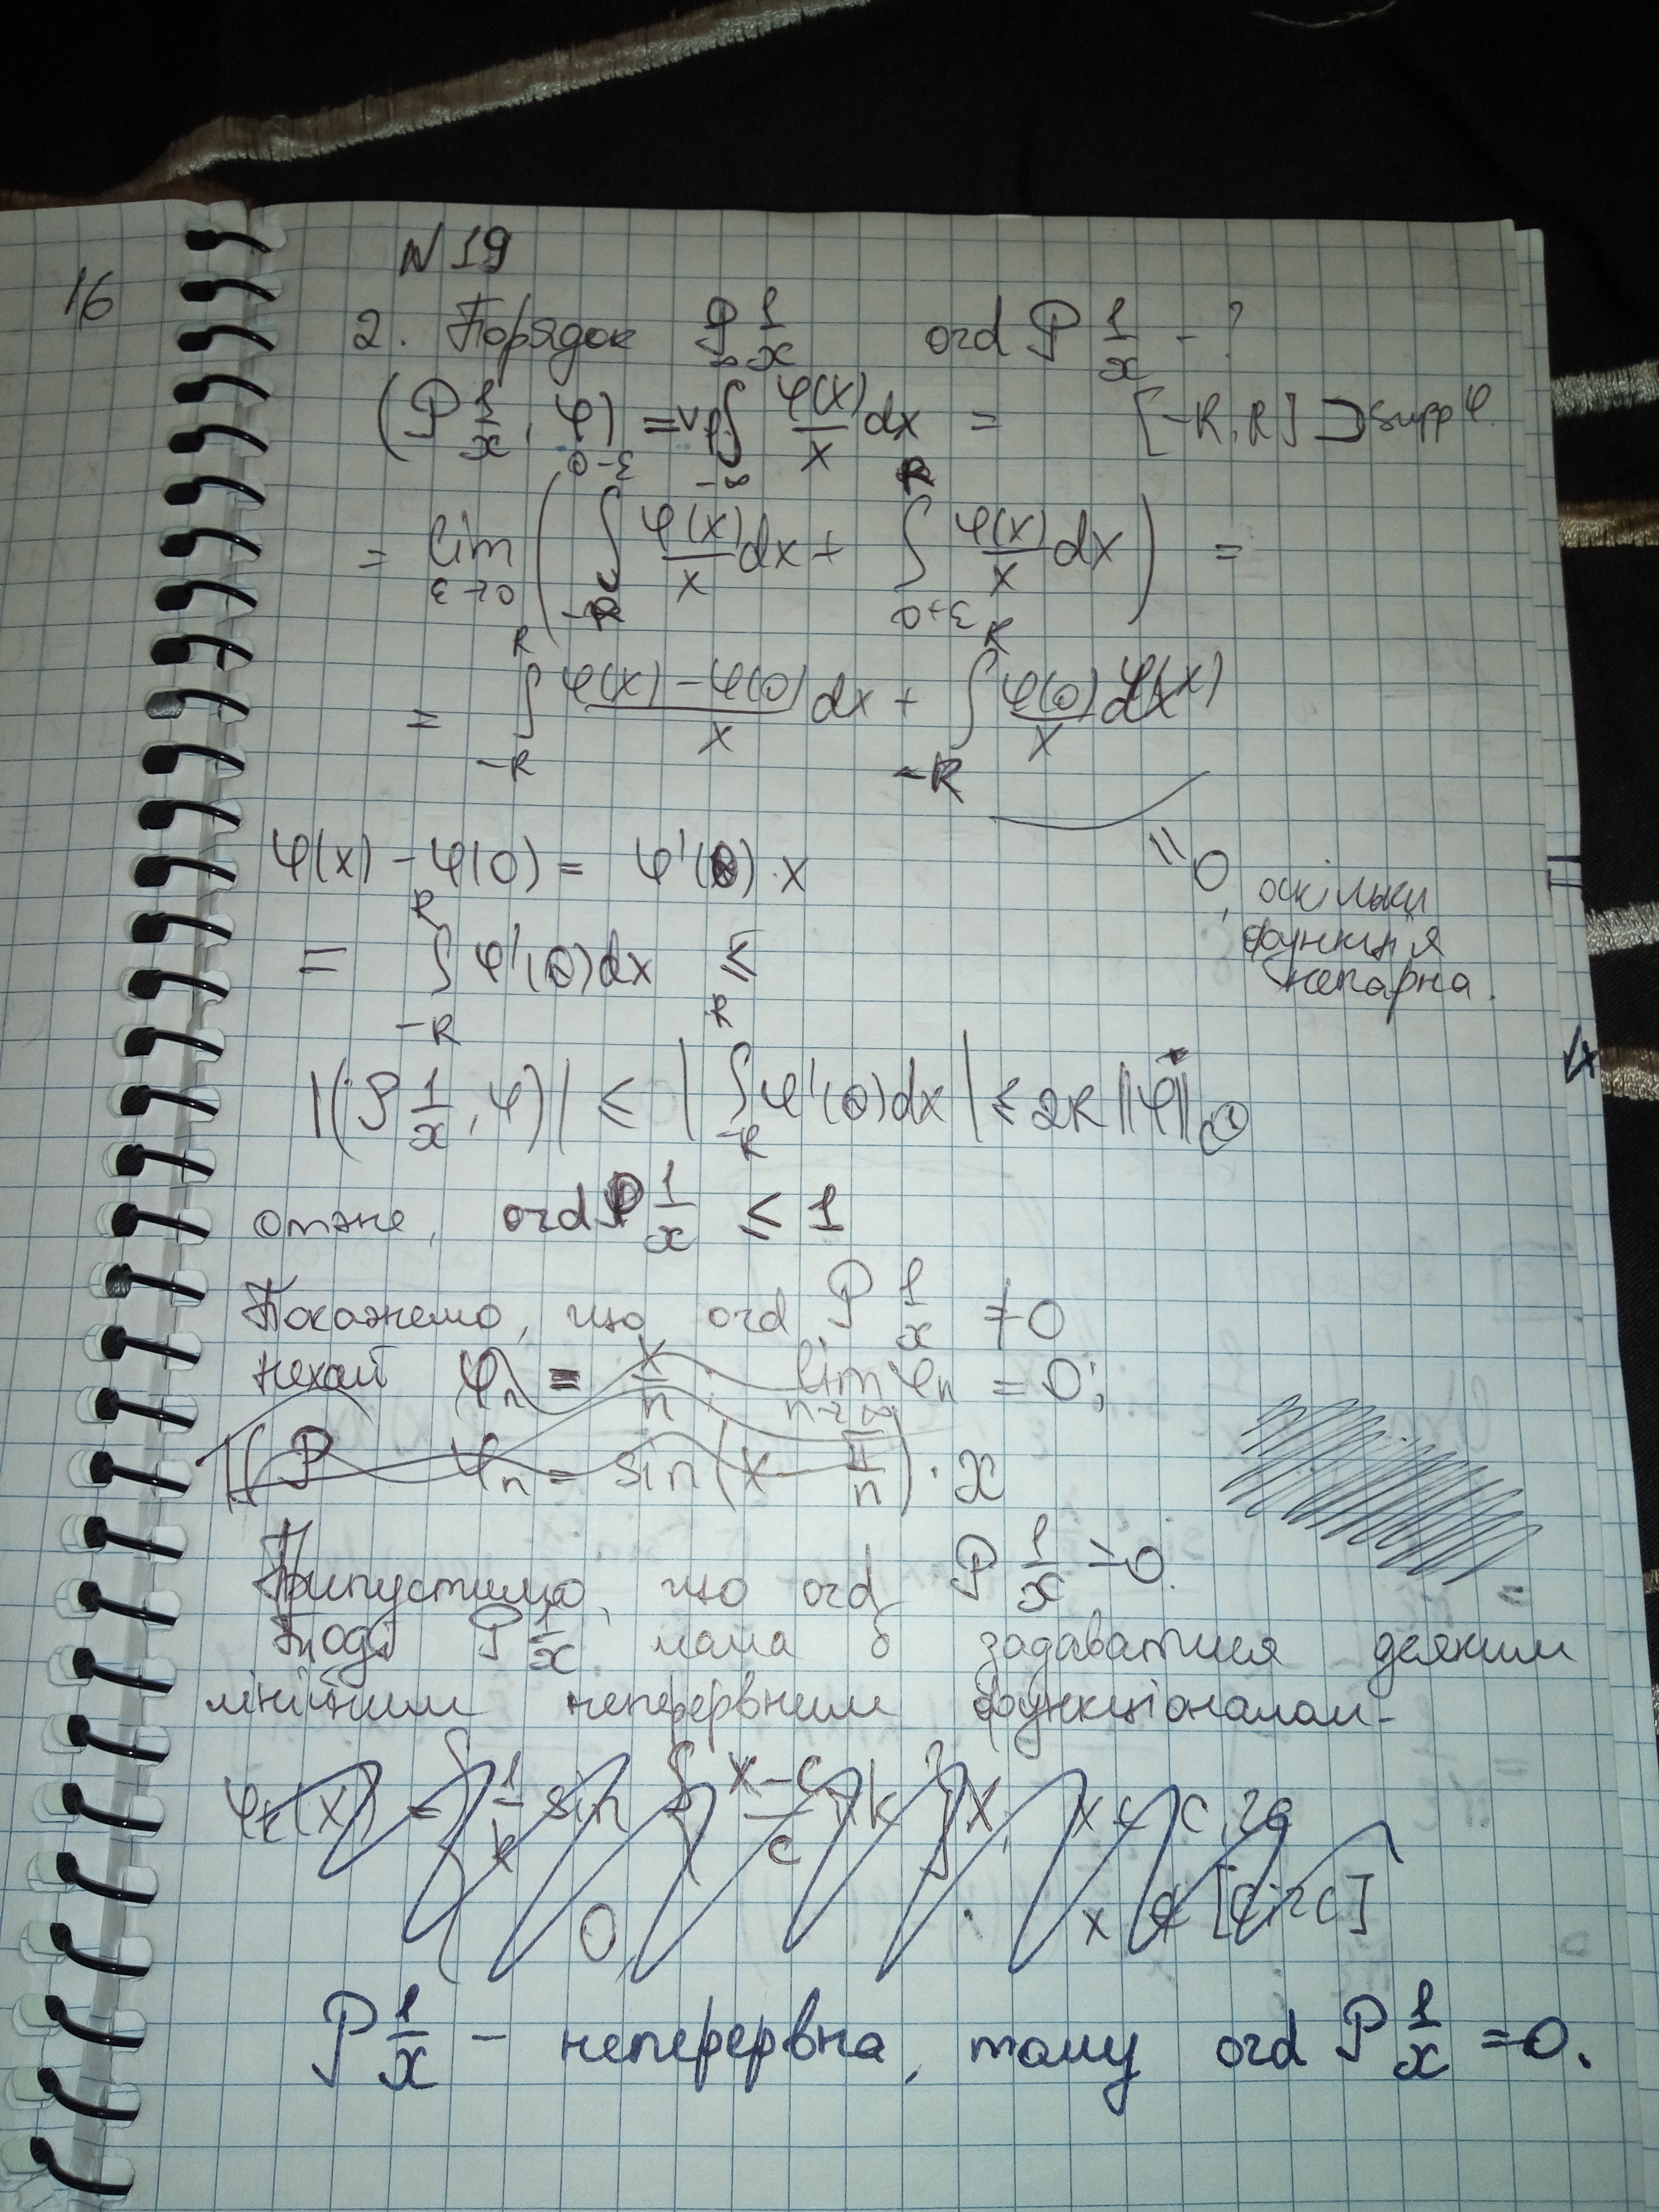 16
N 19
2. Порядок P 1/x ord P 1/x - ?
(P 1/x, φ) = vp ∫_{-∞}^{∞} φ(x)/x dx = [-R, R] ⊃ supp φ.
= lim_{ε→0} ( ∫_{-R}^{0-ε} φ(x)/x dx + ∫_{0+ε}^{R} φ(x)/x dx ) =
= ∫_{-R}^{R} (φ(x) - φ(0))/x dx + ∫_{-R}^{R} φ(0)/x dx
φ(x) - φ(0) = φ'(θ) · x
"0, оскільки
функція
непарна.
= ∫_{-R}^{R} φ'(θ) dx ≤
|(P 1/x, φ)| ≤ | ∫_{-R}^{R} φ'(θ) dx | ≤ 2R ||φ||
отже, ord P 1/x ≤ 1
Покажемо, що ord P 1/x ≠ 0
нехай φ_n = x/n ; lim_{n→∞} φ_n = 0;
φ_n = sin(x - π/n) · x
Припустимо, що ord P 1/x = 0.
Тоді P 1/x мала б задаватися деяким
лінійним неперервним функціоналом-
P 1/x - неперервна, тому ord P 1/x = 0.